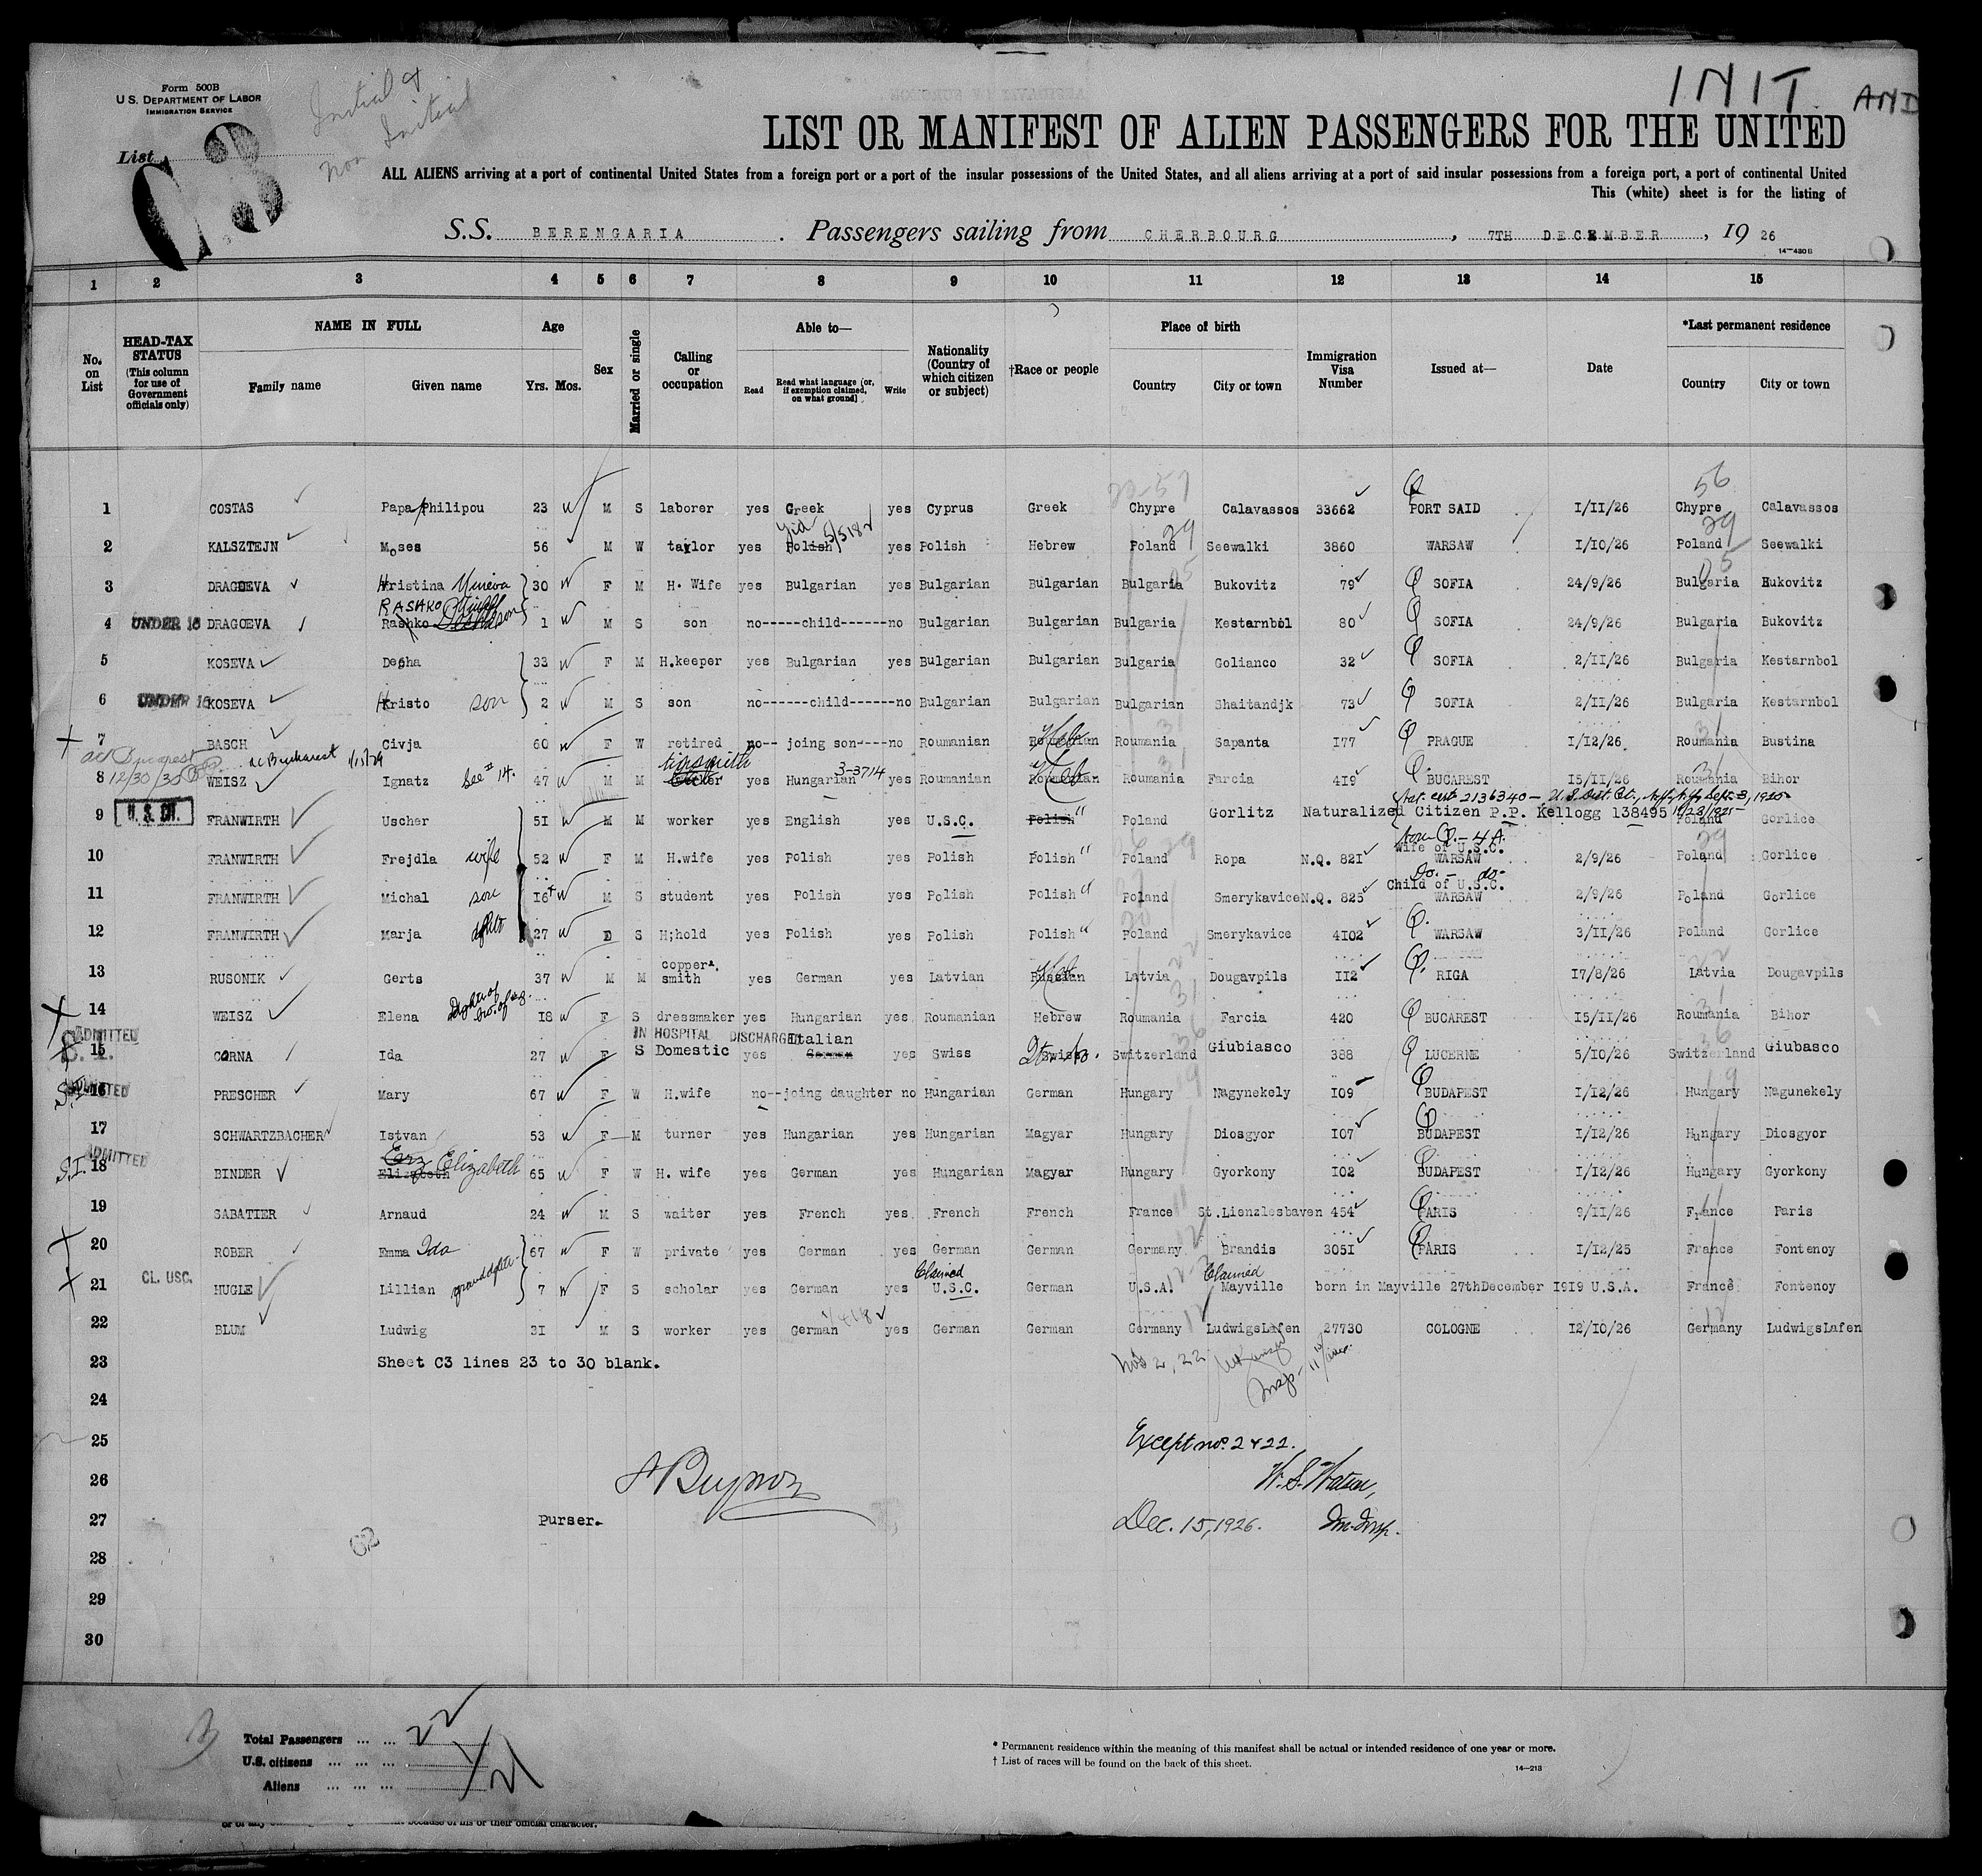 Form 500B
U. S. DEPARTMENT OF LABOR
IMMIGRATION SERVICE
List C3
Initial &
Non Initial
INIT AND
LIST OR MANIFEST OF ALIEN PASSENGERS FOR THE UNITED
ALL ALIENS arriving at a port of continental United States from a foreign port or a port of the insular possessions of the United States, and all aliens arriving at a port of said insular possessions from a foreign port, a port of continental United
This (white) sheet is for the listing of
S.S. BERENGARIA. Passengers sailing from CHERBOURG, 7TH DECEMBER, 19 26
14-430B
1 2 3 4 5 6 7 8 9 10 11 12 13 14 15
No. on List
HEAD-TAX STATUS (This column for use of Government officials only)
NAME IN FULL Family name Given name
Age Yrs. Mos.
Sex
Married or single
Calling or occupation
Able to— Read Read what language [or, if exemption claimed, on what ground] Write
Nationality (Country of which citizen or subject)
†Race or people
Place of birth Country City or town
Immigration Visa Number
Issued at—
Date
*Last permanent residence Country City or town
1 COSTAS Papa Philipou 23 M S laborer yes Greek yes Cyprus Greek Chypre Calavassos 33662 PORT SAID 1/11/26 Chypre Calavassos
2 KALSZTEJN Moses 56 M W taylor yes Polish Yid yes Polish Hebrew Poland Seewalki 3860 WARSAW 1/10/26 Poland Seewalki
3 DRAGOEVA Hristina Mineva 30 F M H. Wife yes Bulgarian yes Bulgarian Bulgarian Bulgaria Bukovitz 79 SOFIA 24/9/26 Bulgaria Bukovitz
4 UNDER 16 DRAGOEVA Rashko RASHKO son 1 M S son no-----child------no Bulgarian Bulgarian Bulgaria Kestarnbol 80 SOFIA 24/9/26 Bulgaria Bukovitz
5 KOSEVA Desha 33 F M H.keeper yes Bulgarian yes Bulgarian Bulgarian Bulgaria Golianco 32 SOFIA 2/11/26 Bulgaria Kestarnbol
6 UNDER 16 KOSEVA Hristo son 2 M S son no------child------no Bulgarian Bulgarian Bulgaria Shaitandjk 73 SOFIA 2/11/26 Bulgaria Kestarnbol
7 BASCH Civja 60 F W retired no-- joing son----no Roumanian Roumanian Heb Roumania Sapanta 177 PRAGUE 1/12/26 Roumania Bustina
12/30/30 a/c Bucharest
8 WEISZ Ignatz See # 14. 47 M M tinsmith yes Hungarian 3-3714 yes Roumanian Roumanian Heb Roumania Farcia 419 BUCAREST 15/11/26 Roumania Bihor
Nat. cert. 2136340 — U.S. Dist. Ct., Sept. 3, 1925
9 U. S. CIT. FRANWIRTH Uscher 51 M M worker yes English yes U.S.C. Polish " Poland Gorlitz Naturalized Citizen P.P. Kellogg 138495 Poland Gorlice
10 FRANWIRTH Frejdla wife 52 F M H.wife yes Polish yes Polish Polish " Poland Ropa N.Q. 821 Wife of U.S.C. WARSAW 2/9/26 Poland Gorlice
11 FRANWIRTH Michal son 16 M S student yes Polish yes Polish Polish " Poland Smerykavice N.Q. 825 Do. - do- Child of U.S.C. WARSAW 2/9/26 Poland Gorlice
12 FRANWIRTH Marja dghtr 27 S H;hold yes Polish yes Polish Polish " Poland Smerykavice 4102 WARSAW 3/11/26 Poland Gorlice
13 RUSONIK Gerts 37 M M copper smith yes German yes Latvian Russian Heb Latvia Dougavpils 112 RIGA 17/8/26 Latvia Dougavpils
14 WEISZ Elena Dghtr of No. of #8. 18 F S dressmaker yes Hungarian yes Roumanian Hebrew Roumania Farcia 420 BUCAREST 15/11/26 Roumania Bihor
IN HOSPITAL DISCHARGED
15 ADMITTED S. I. CORNA Ida 27 F S Domestic yes Italian German yes Swiss Swiss Switzerland Giubiasco 388 LUCERNE 5/10/26 Switzerland Giubasco
16 ADMITTED S.I. PRESCHER Mary 67 F W H.wife no--joing daughter no Hungarian German Hungary Nagynekely 109 BUDAPEST 1/12/26 Hungary Nagunekely
17 SCHWARTZBACHER Istvan 53 F M turner yes Hungarian yes Hungarian Magyar Hungary Diosgyor 107 BUDAPEST 1/12/26 Hungary Diosgyor
18 ADMITTED S.I. BINDER Elizabeth Elizabeth 65 F W H. wife yes German yes Hungarian Magyar Hungary Gyorkony 102 BUDAPEST 1/12/26 Hungary Gyorkony
19 SABATIER Arnaud 24 M S waiter yes French yes French French France St.Lienzlesbaven 454 PARIS 9/11/26 France Paris
20 ROBER Emma Ida 67 F W private yes German yes German German Germany Brandis 3051 PARIS 1/12/25 France Fontenoy
21 CL. USC. HUGLE Lillian granddghtr 7 F S scholar yes German yes Claimed U.S.C. German U.S.A. Claimed Mayville born in Mayville 27thDecember 1919 U.S.A. France Fontenoy
22 BLUM Ludwig 31 M S worker yes German yes German German Germany LudwigsLafen 27730 COLOGNE 12/10/26 Germany LudwigsLafen
23 Sheet C3 lines 23 to 30 blank.
Nos 2, 22 Insp.
24
25 Except nos. 2 & 22.
26 W. S. Watson,
27 Purser. Dec. 15, 1926. Im. Insp.
28
29
30
Total Passengers ... ... 22
U.S. citizens ... ... ... 1
Aliens ... ... ... 21
* Permanent residence within the meaning of this manifest shall be actual or intended residence of one year or more.
† List of races will be found on the back of this sheet.
14—213
because of his or their official character.